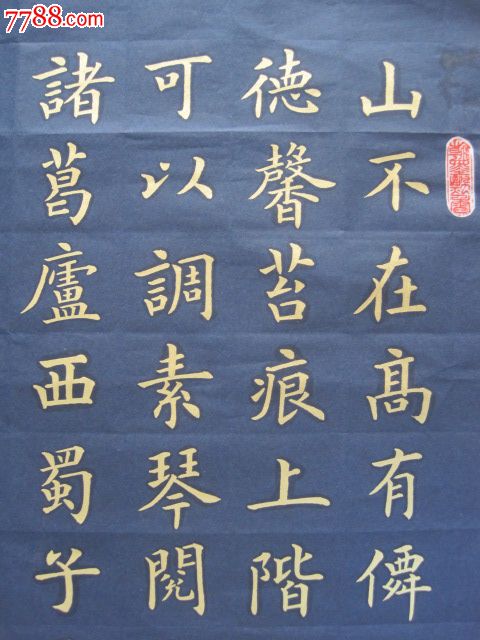 7788.com
山不在高有僊
德馨苔痕上階
可以調素琴閱
諸葛廬西蜀子